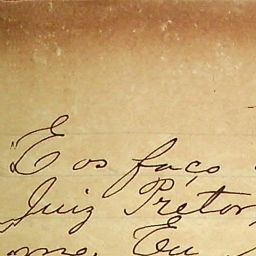 "E os faço
Juiz Pretor,
me. Eu